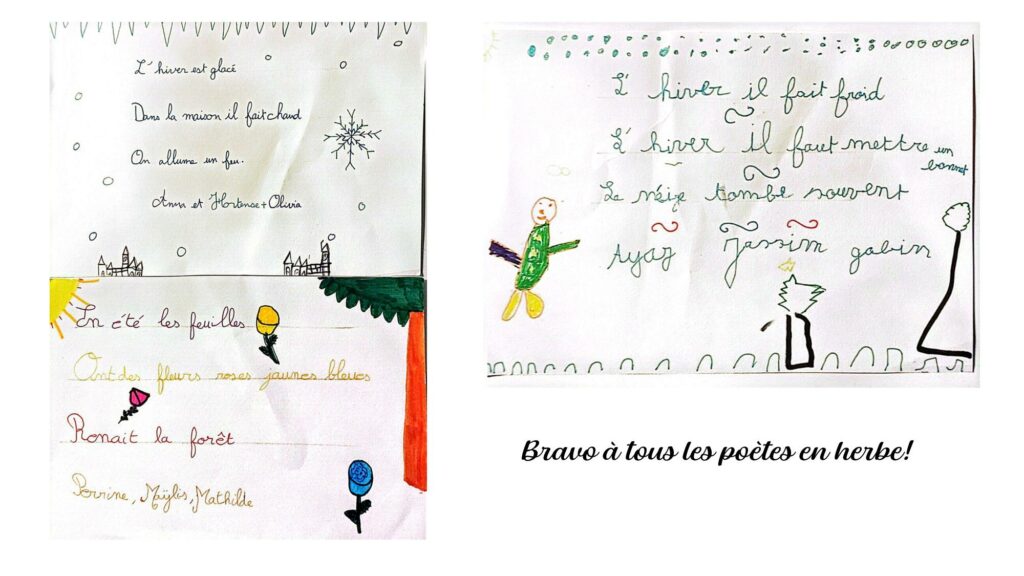 L'hiver est glacé
Dans la maison il fait chaud
On allume un feu.
Anna et Hortense + Olivia
En été les feuilles
Ont des fleurs roses jaunes bleues
Renait la forêt
Perrine, Maÿlis, Mathilde
L'hiver il fait froid
L'hiver il faut mettre un bonnet
La neige tombe souvent
Ayaz Jassim gabin
Bravo à tous les poètes en herbe!